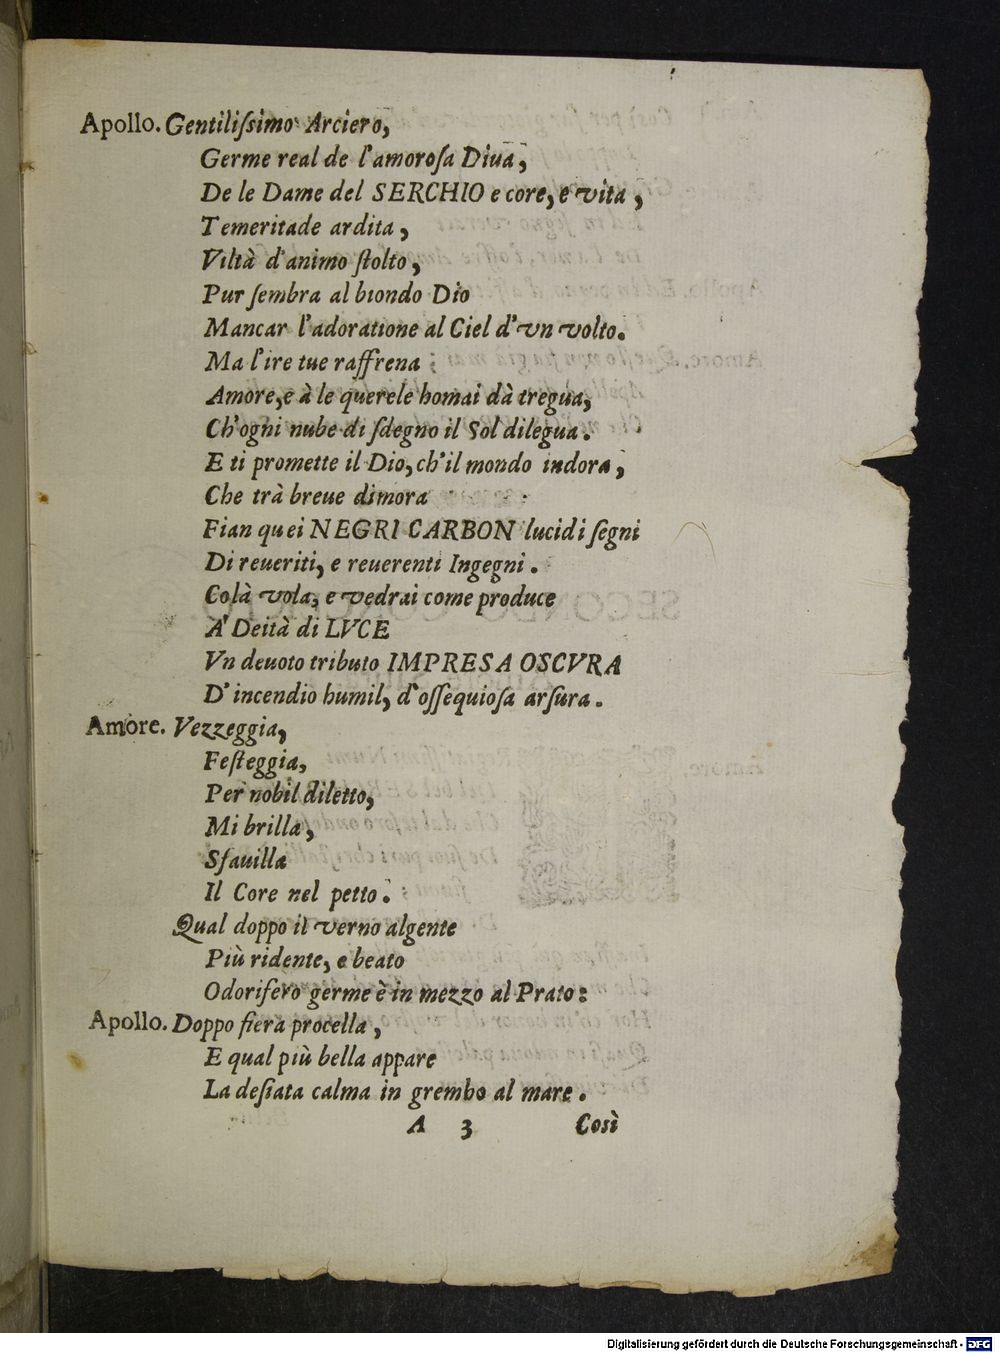 Apollo. Gentiliſsimo Arciero,
Germe real de l'amoroſa Diua,
De le Dame del SERCHIO e core, e vita,
Temeritade ardita,
Viltà d'animo ſtolto,
Pur ſembra al biondo Dio
Mancar l'adoratione al Ciel d'vn volto.
Ma l'ire tue raffrena
Amore, e à le querele homai dà tregua,
Ch'ogni nube di ſdegno il Sol dilegua.
E ti promette il Dio, ch'il mondo indora,
Che trà breue dimora
Fian quei NEGRI CARBON lucidi ſegni
Di reueriti, e reuerenti Ingegni.
Colà vola, e vedrai come produce
A' Deità di LVCE
Vn deuoto tributo IMPRESA OSCVRA
D'incendio humil, d'oſſequioſa arſura.
Amore. Vezzeggia,
Feſteggia,
Per nobil diletto,
Mi brilla,
Sfauilla
Il Core nel petto.
Qual doppo il verno algente
Più ridente, e beato
Odorifero germe è in mezzo al Prato:
Apollo. Doppo fiera procella,
E qual più bella appare
La deſiata calma in grembo al mare.
A 3 Così
Digitalisierung gefördert durch die Deutsche Forschungsgemeinschaft - DFG